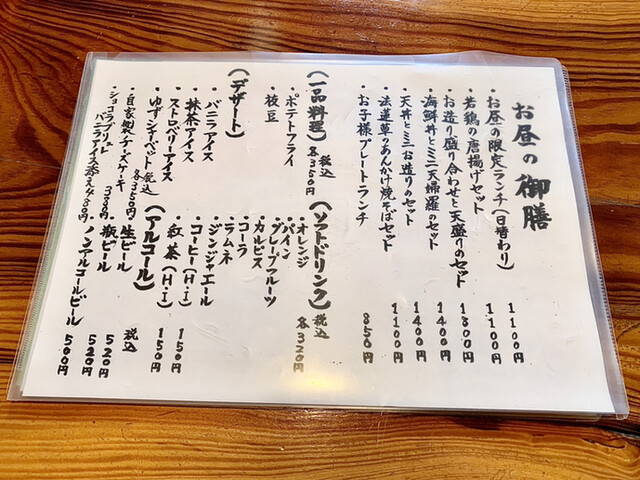 お昼の御膳
・お昼の限定ランチ(日替わり) 1100円
・若鶏の唐揚げセット 1100円
・お造り盛り合わせと天盛りのセット 1300円
・海鮮丼とミニ天婦羅のセット 1400円
・天丼とミニお造りのセット 1400円
・法蓮草のあんかけ焼そばセット 1100円
・お子様プレートランチ 850円
(一品料理) 税込各350円
・ポテトフライ
・枝豆
(デザート)
・バニラアイス
・抹茶アイス
・ストロベリーアイス
・ゆずシャーベット 税込各350円
・自家製チーズケーキ
・ショコラブリュレ
バニラアイス添え
(ソフトドリンク) 税込各320円
・オレンジ
・パイン
・グレープフルーツ
・カルピス
・コーラ
・ラムネ
・ジンジャエール
・コーヒー(H・I) 150円
・紅茶(H・I) 150円
(アルコール) 税込
・生ビール 520円
・瓶ビール 520円
・ノンアルコールビール 500円